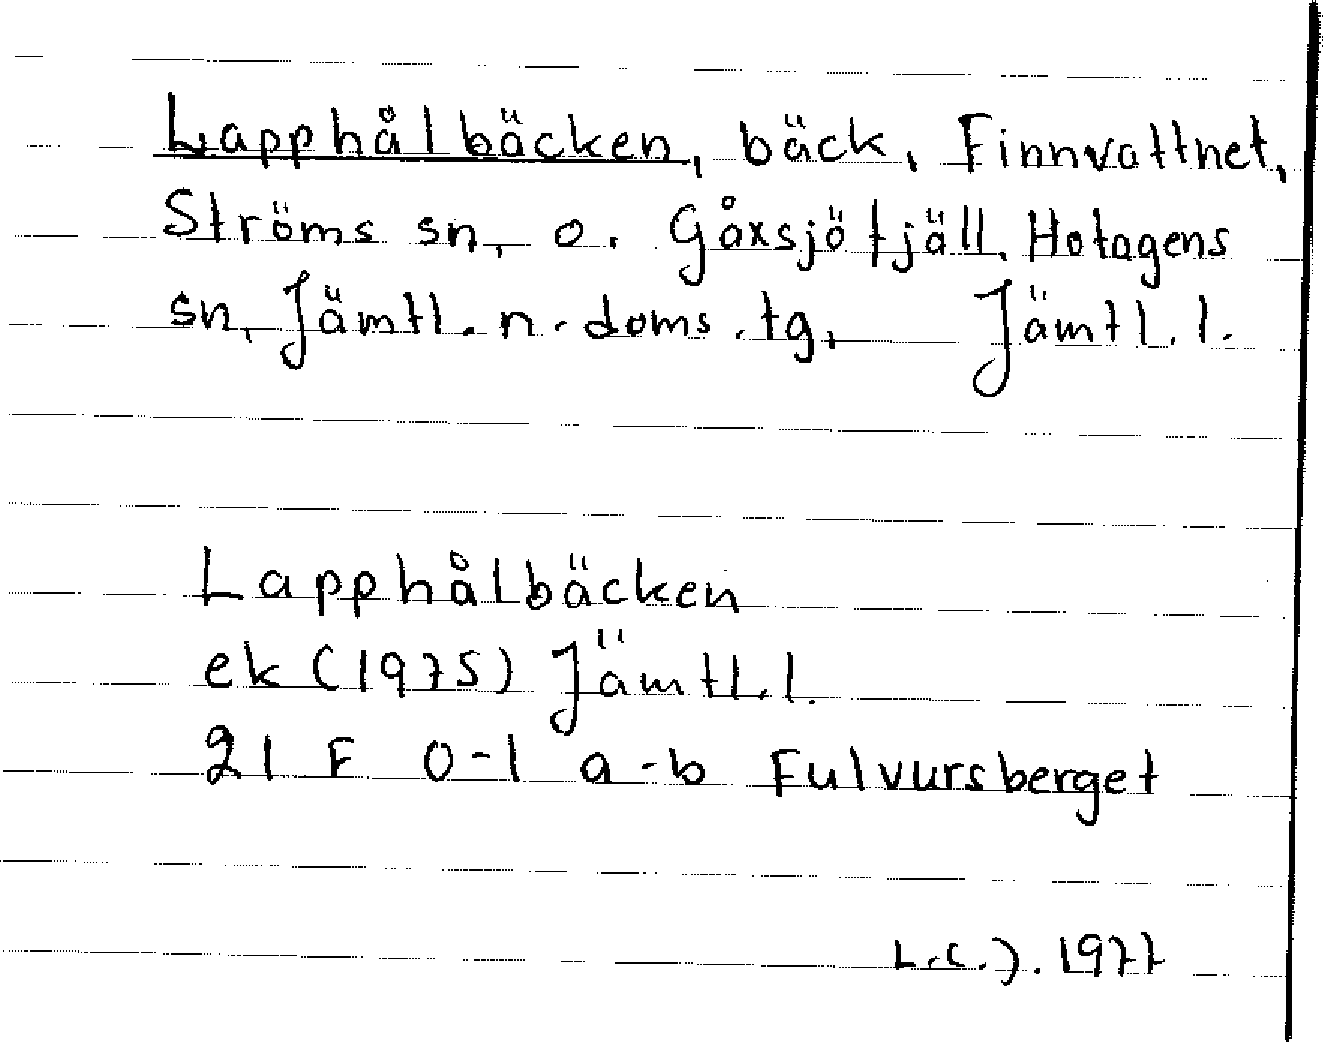 Lapphålbäcken, bäck, Finnvattnet,
Ströms sn, o. Gåxsjöfjäll, Hotagens
sn, Jämtl. n. doms.tg, Jämtl. l.
Lapphålbäcken
ek (1975) Jämtl. l.
21 F 0-1 a-b Fulvursberget
L.C.J. 1977